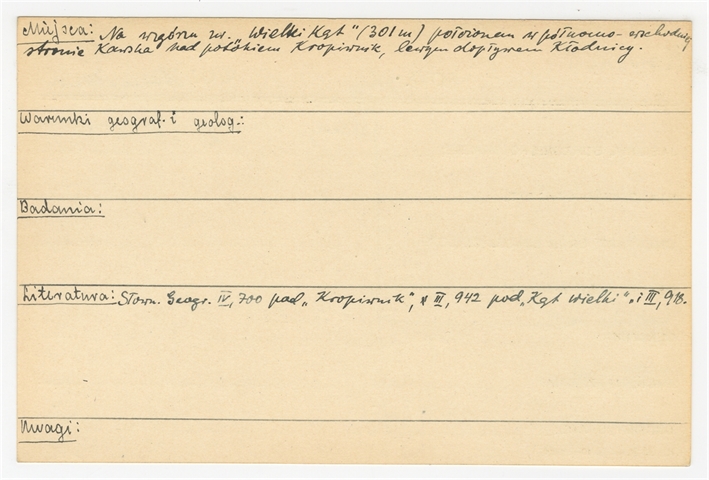 Miejsca: Na wzgórzu zw. „Wielki Kąt" (301 m) położonem w północno-wschodniej
stronie Kawska nad potokiem Kropiwnik, lewym dopływem Kłodnicy.
Warunki geograf. i geolog.:
Badania:
Literatura: Słown. Geogr. IV, 700 pod „Kropiwnik", III, 942 pod „Kąt Wielki" i III, 918.
Uwagi: